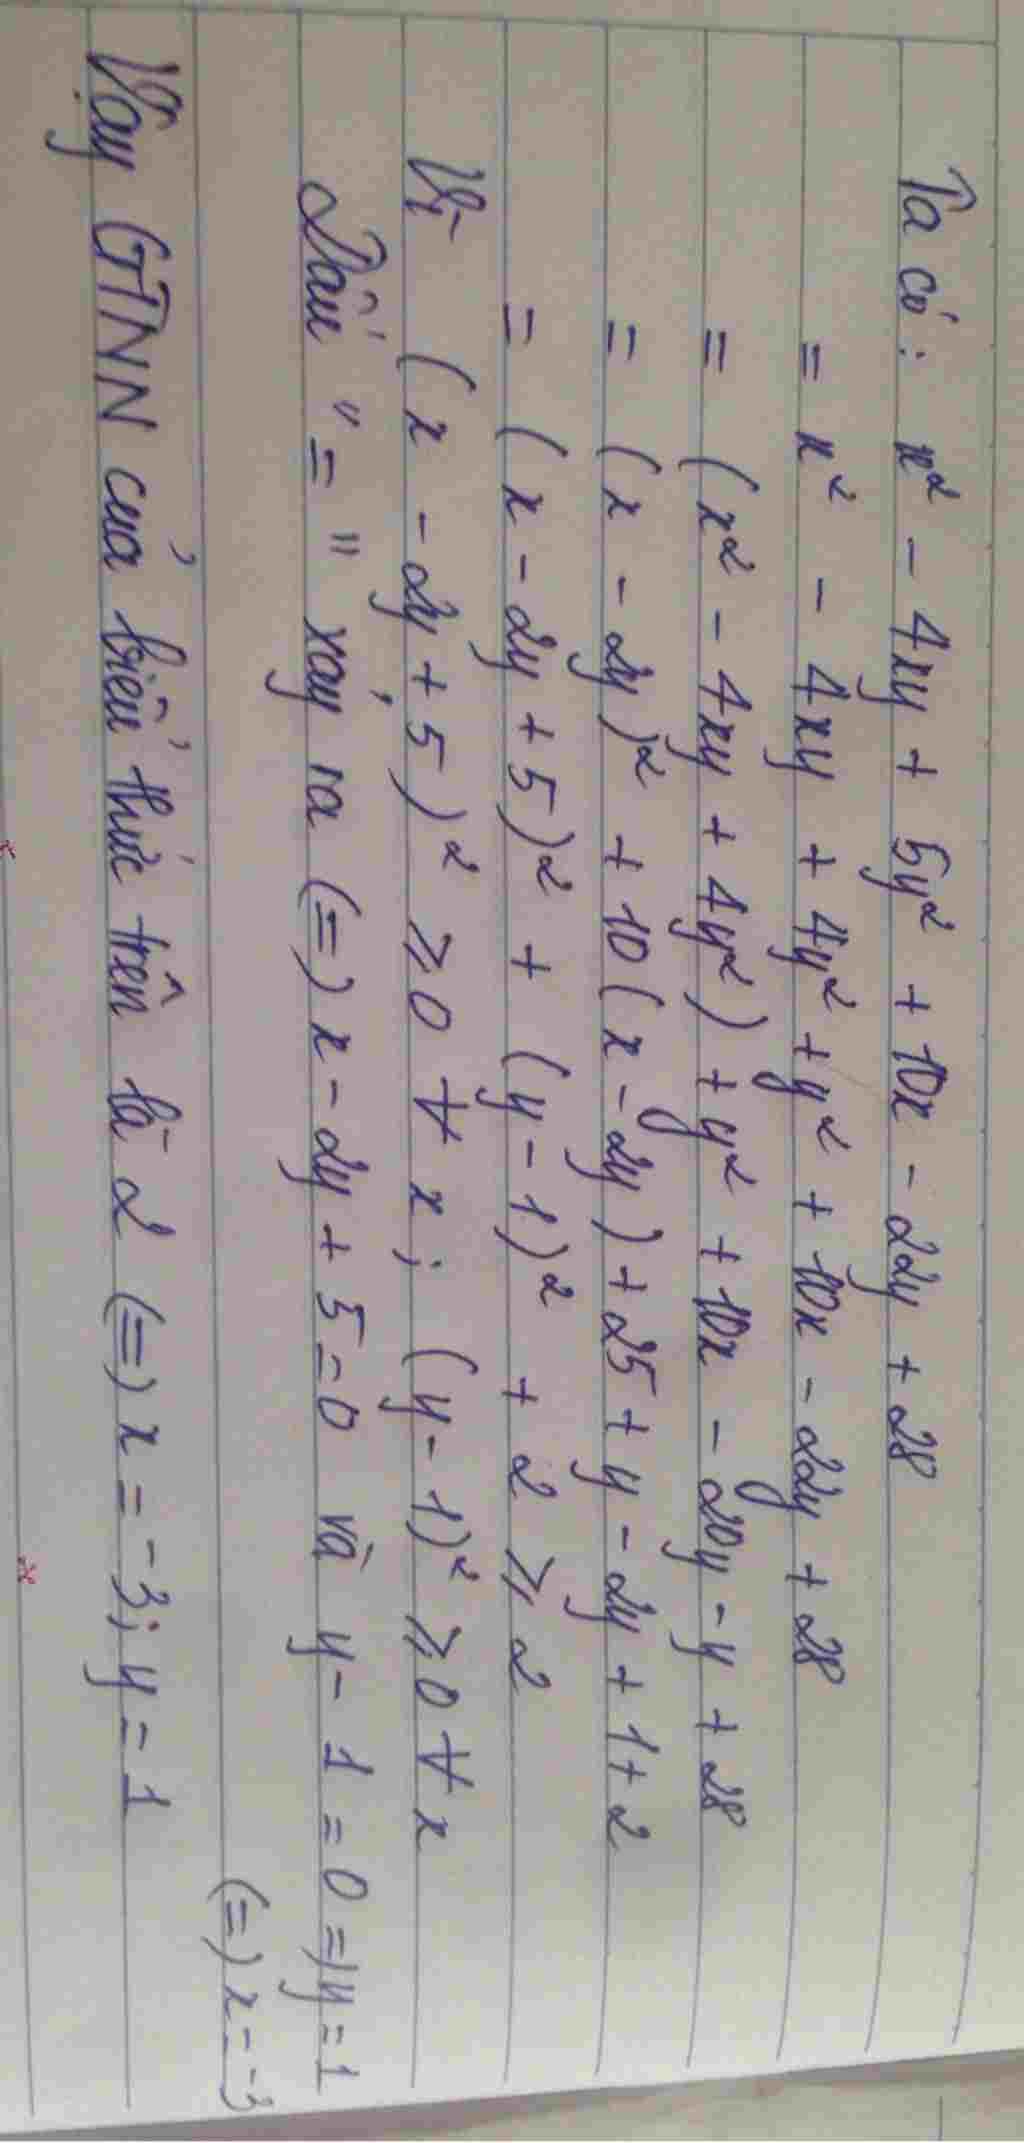 Ta có: x² - 4xy + 5y² + 10x - 22y + 28
= x² - 4xy + 4y² + y² + 10x - 22y + 28
= (x² - 4xy + 4y²) + y² + 10x - 20y - y + 28
= (x - 2y)² + 10(x - 2y) + 25 + y - 2y + 1 + 2
= (x - 2y + 5)² + (y - 1)² + 2 ⩾ 2
Vì (x - 2y + 5)² ⩾ 0 ∀ x; (y - 1)² ⩾ 0 ∀ x
Dấu "=" xảy ra (=) x - 2y + 5 = 0 và y - 1 = 0 =) y = 1
(=) x = -3
Vậy GTNN của biểu thức trên là 2 (=) x = -3; y = 1